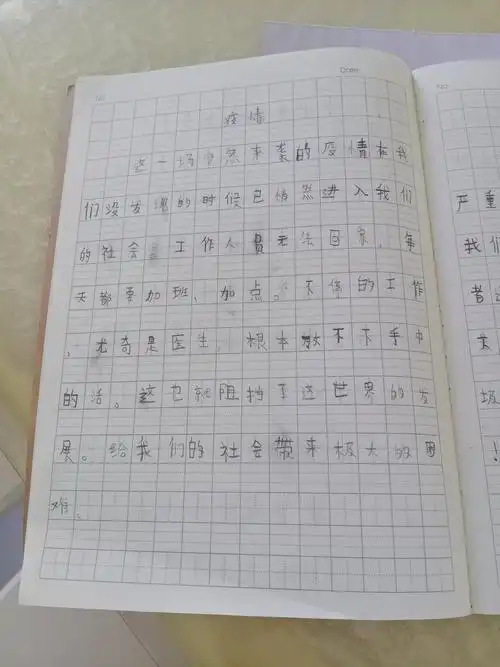 疫情
这一场突然来袭的疫情在我
们没发现的时候已悄然进入我们
的社会 工作人员无法回家,每
天都要加班、加点。不停的工作
,尤奇是医生 根本放不下手中
的活。这也就阻挡了这世界的发
展。给我们的社会带来极大的困
难。
严重
我们
者
圾
!
Date
No